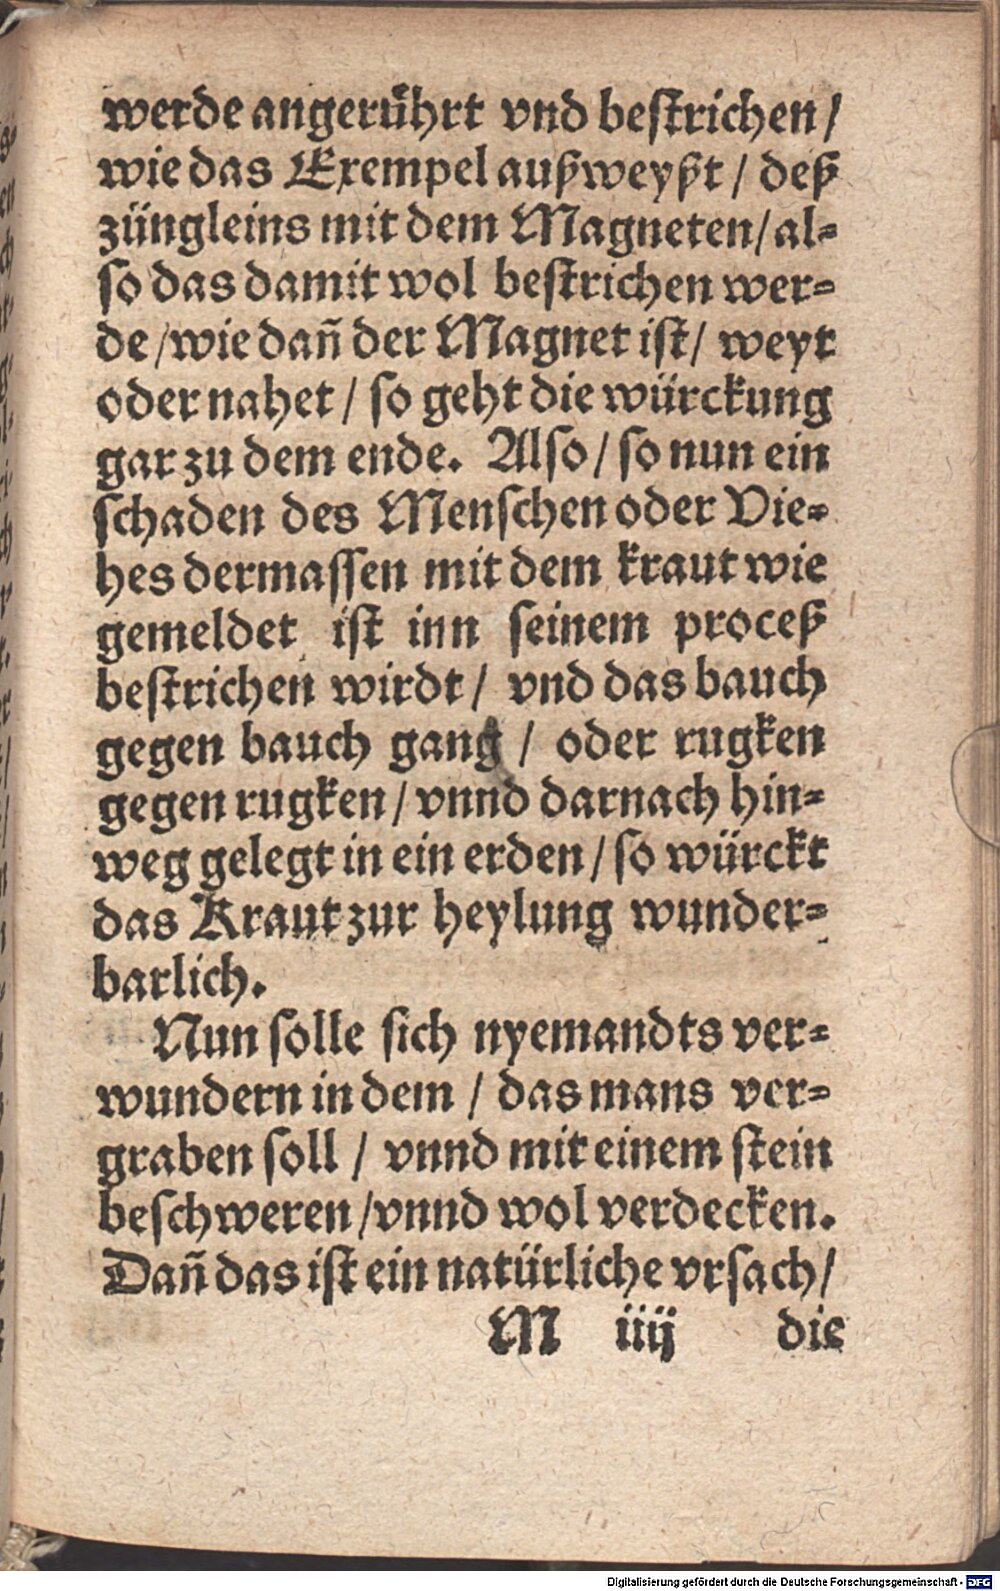 werde angerůhrt vnd beſtrichen /
wie das Exempel außweyßt / deß
züngleins mit dem Magneten / al⸗
ſo das damit wol beſtrichen wer⸗
de / wie dañ der Magnet iſt / weyt
oder nahet / ſo geht die würckung
gar zu dem ende. Alſo / ſo nun ein
ſchaden des Menſchen oder Vie⸗
hes dermaſſen mit dem kraut wie
gemeldet iſt inn ſeinem proceß
beſtrichen wirdt / vnd das bauch
gegen bauch gang / oder rugken
gegen rugken / vnnd darnach hin⸗
weg gelegt in ein erden / ſo würckt
das Kraut zur heylung wunder⸗
barlich.
Nun ſolle ſich nyemandts ver⸗
wundern in dem / das mans ver⸗
graben ſoll / vnnd mit einem ſtein
beſchweren / vnnd wol verdecken.
Dañ das iſt ein natürliche vrſach /
M iiij die
Digitalisierung gefördert durch die Deutsche Forschungsgemeinschaft - DFG